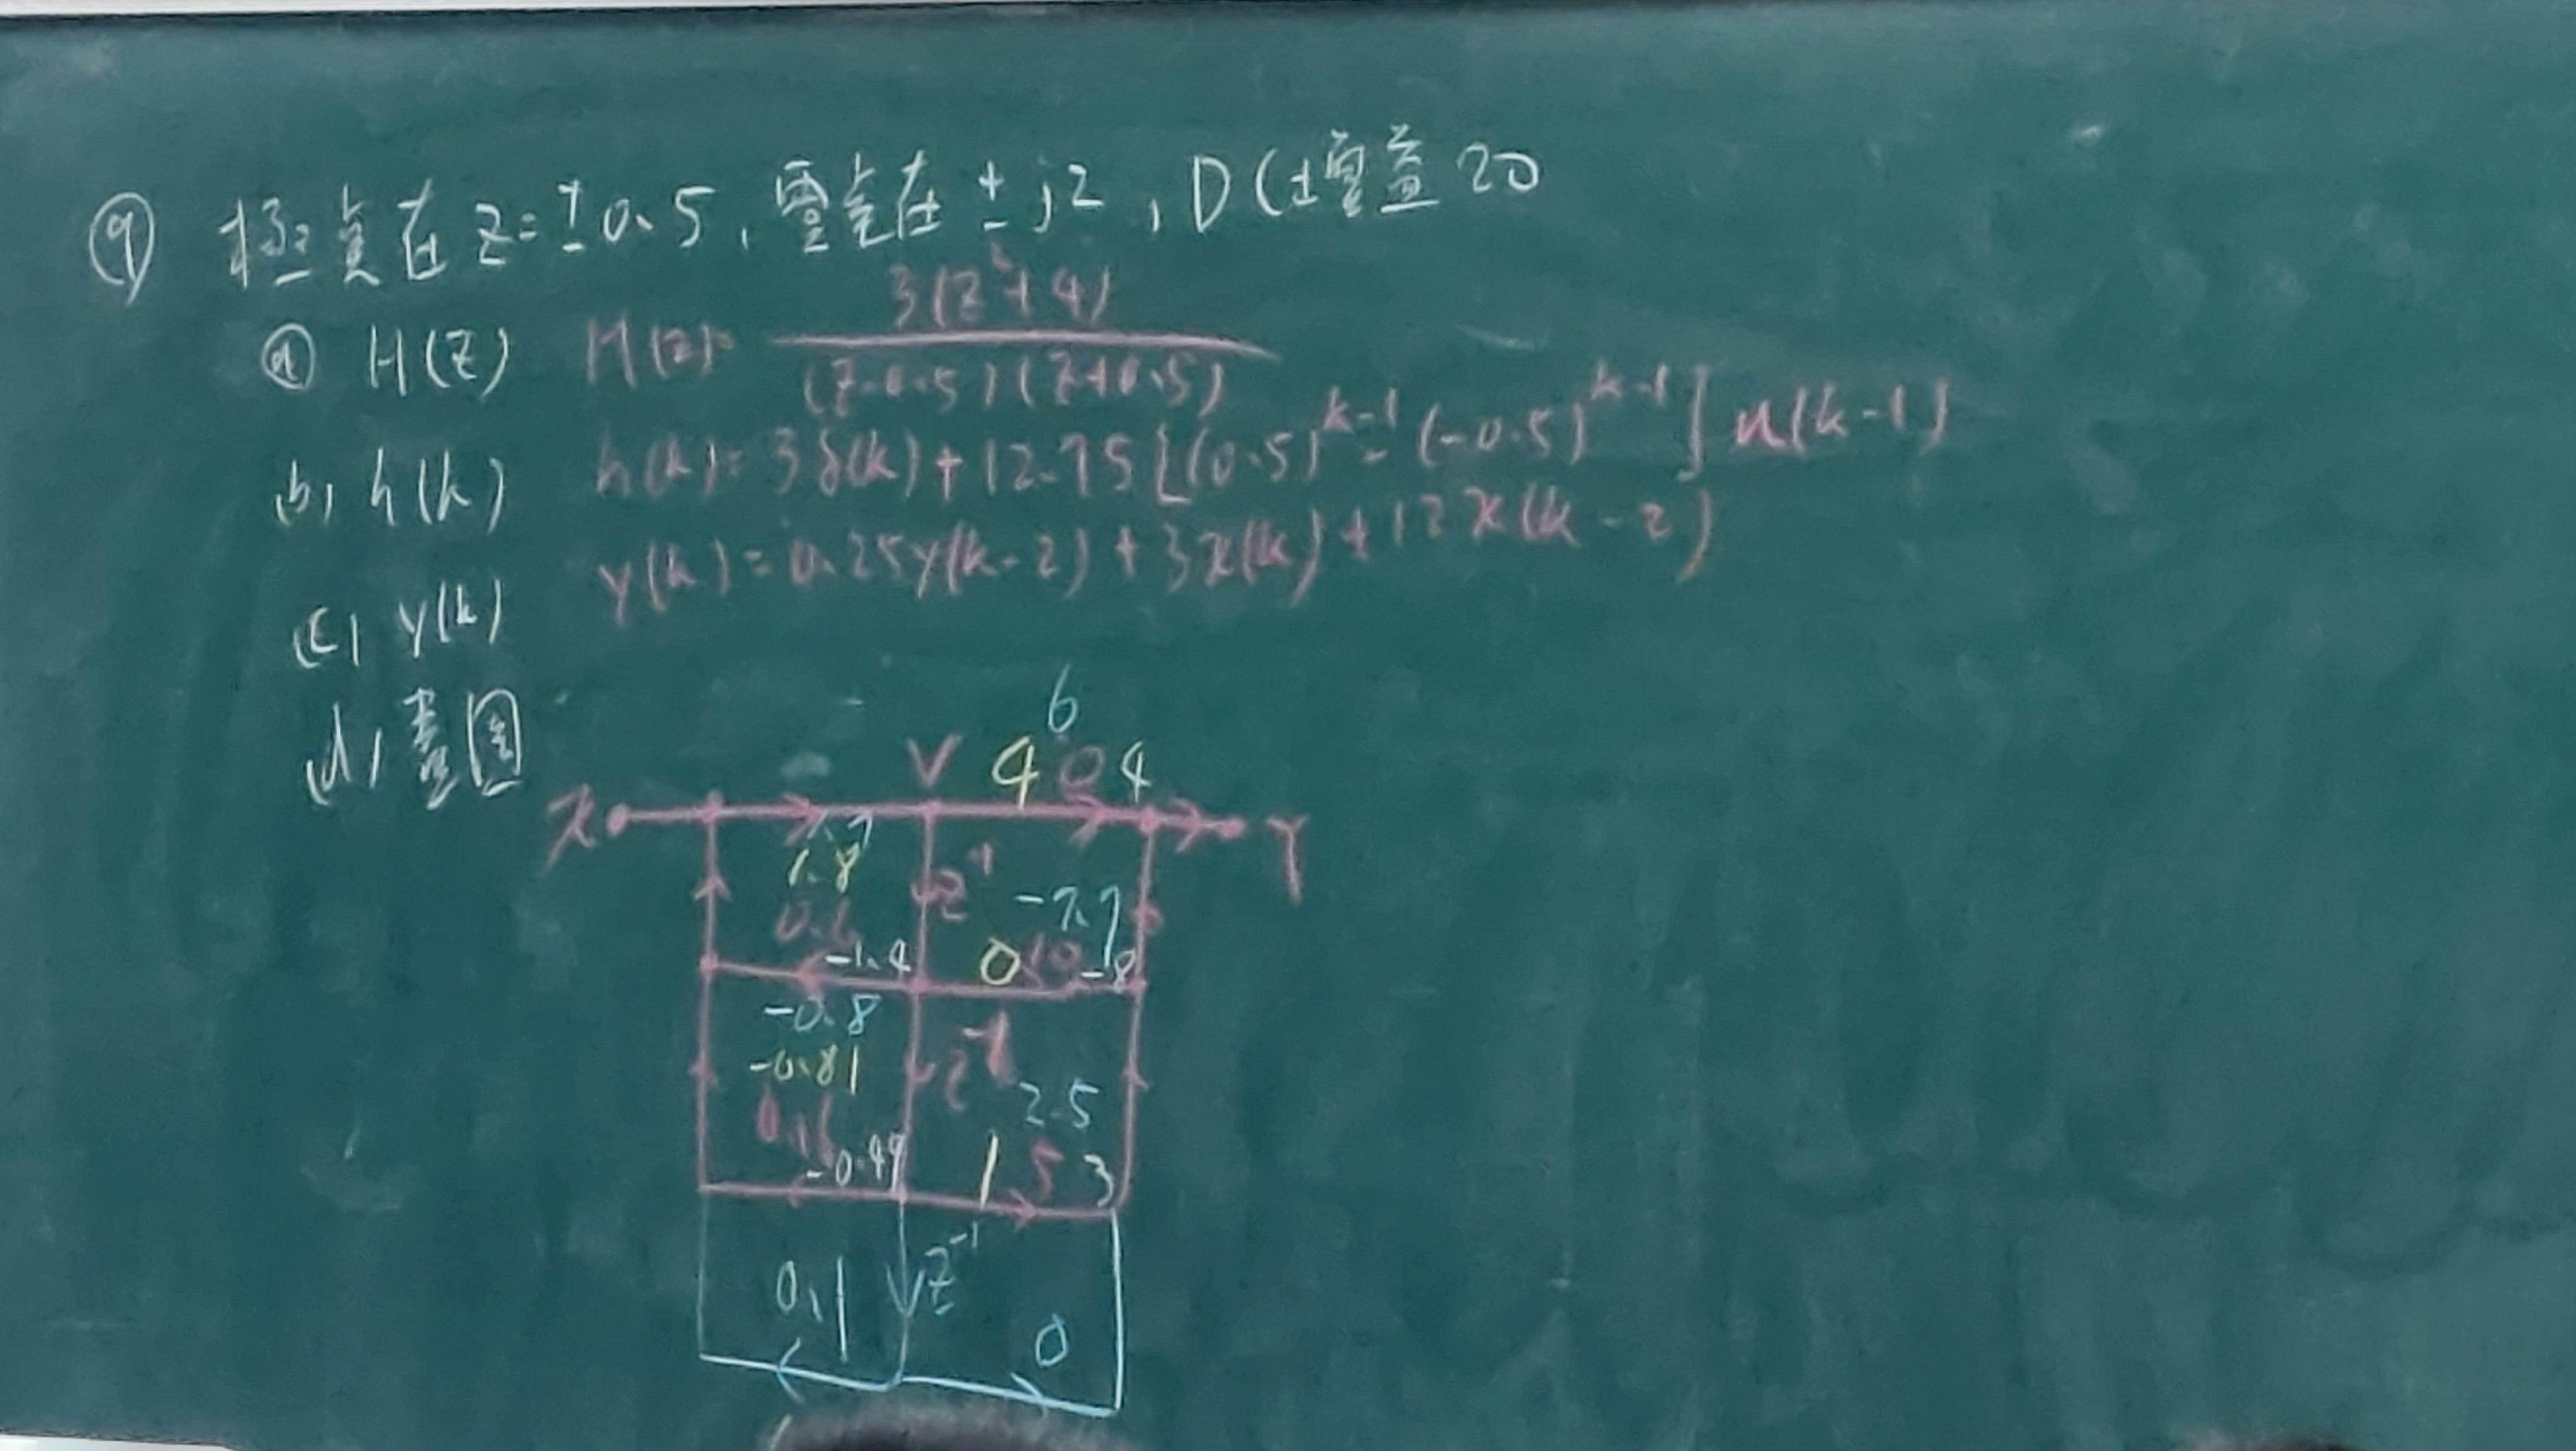 ⑨ 極點在 z=±0.5, 零點在 ±j2, DC增益 20
ⓐ H(z) H(z)= 3(z²+4)
(z-0.5)(z+0.5)
(b) h(k) h(k)=3δ(k)+12.75[(0.5)^k-1 - (-0.5)^k-1]u(k-1)
(c) y(k) y(k)=0.25y(k-2)+3x(k)+12x(k-2)
(d) 畫圖
6
V 4 0 4
X Y
1.7
1.8 z⁻¹ -7.7
0.6
-1.4 0 10 -8
-0.8
-0.81 z⁻¹ 2.5
0.16
-0.49 1 5 3
0.1 z⁻¹ 0